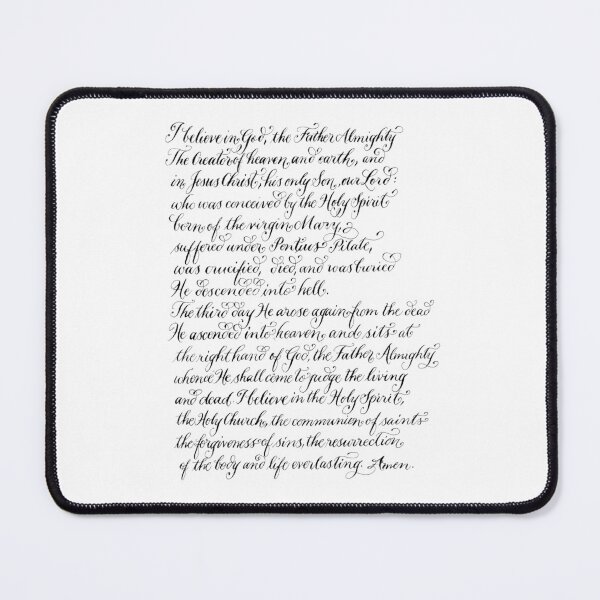 I believe in God, the Father Almighty
The Creator of heaven and earth, and
in Jesus Christ, his only Son, our Lord:
who was conceived by the Holy Spirit
born of the virgin Mary,
suffered under Pontius Pilate,
was crucified, died, and was buried
He descended into hell.
The third day He arose again from the dead
He ascended into heaven and sits at
the right hand of God, the Father Almighty
whence He shall come to judge the living
and dead. I believe in the Holy Spirit,
the Holy Church, the communion of saints
the forgiveness of sins, the resurrection
of the body and life everlasting. Amen.